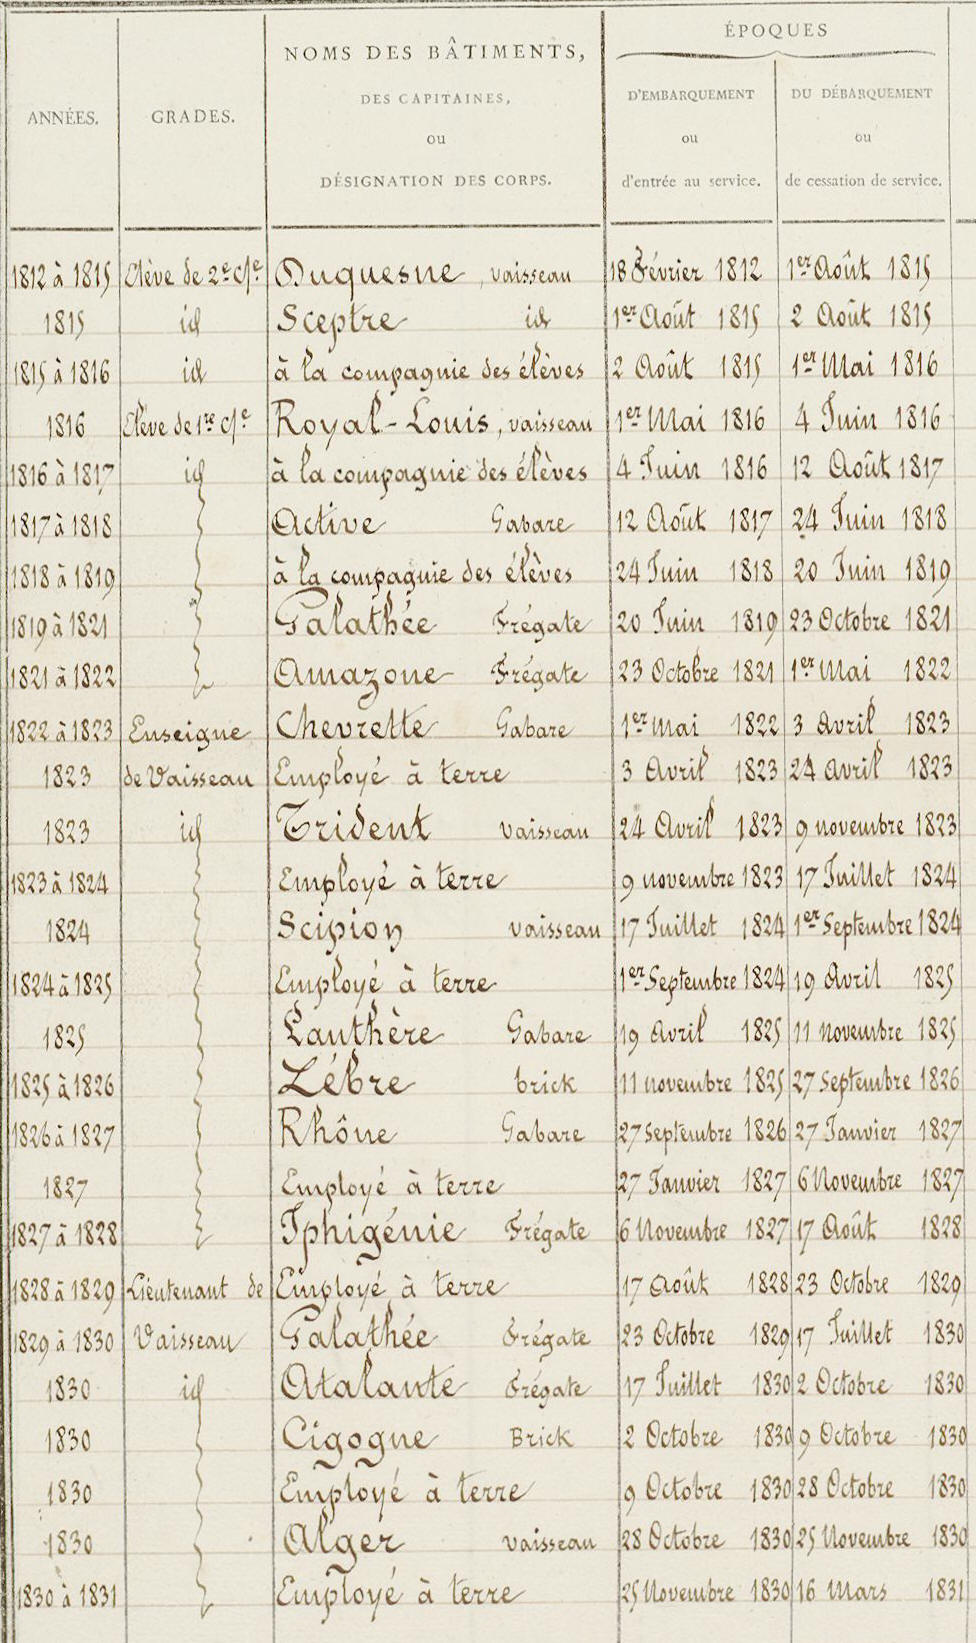 ANNÉES. GRADES. NOMS DES BÂTIMENTS, DES CAPITAINES, ou DÉSIGNATION DES CORPS. ÉPOQUES
D'EMBARQUEMENT ou d'entrée au service. DU DÉBARQUEMENT ou de cessation de service.
1812 à 1815 Elève de 2e Cl.e Duquesne, vaisseau 18 Février 1812 1er Août 1815
1815 id Sceptre id 1er Août 1815 2 Août 1815
1815 à 1816 id à la compagnie des élèves 2 Août 1815 1er Mai 1816
1816 Elève de 1re Cl.e Royal-Louis, vaisseau 1er Mai 1816 4 Juin 1816
1816 à 1817 id à la compagnie des élèves 4 Juin 1816 12 Août 1817
1817 à 1818 Active Gabare 12 Août 1817 24 Juin 1818
1818 à 1819 à la compagnie des élèves 24 Juin 1818 20 Juin 1819
1819 à 1821 Galathée Frégate 20 Juin 1819 23 Octobre 1821
1821 à 1822 Amazone Frégate 23 Octobre 1821 1er Mai 1822
1822 à 1823 Enseigne Chevrette Gabare 1er Mai 1822 3 Avril 1823
1823 de Vaisseau Employé à terre 3 Avril 1823 24 Avril 1823
1823 id Trident vaisseau 24 Avril 1823 9 novembre 1823
1823 à 1824 Employé à terre 9 novembre 1823 17 Juillet 1824
1824 Scipion vaisseau 17 Juillet 1824 1er Septembre 1824
1824 à 1825 Employé à terre 1er Septembre 1824 19 Avril 1825
1825 Lanthère Gabare 19 Avril 1825 11 novembre 1825
1825 à 1826 Zébre brick 11 novembre 1825 27 Septembre 1826
1826 à 1827 Rhône Gabare 27 Septembre 1826 27 Janvier 1827
1827 Employé à terre 27 Janvier 1827 6 Novembre 1827
1827 à 1828 Iphigénie Frégate 6 Novembre 1827 17 Août 1828
1828 à 1829 Lieutenant de Employé à terre 17 Août 1828 23 Octobre 1829
1829 à 1830 Vaisseau Galathée Frégate 23 Octobre 1829 17 Juillet 1830
1830 id Atalante Frégate 17 Juillet 1830 2 Octobre 1830
1830 Cigogne Brick 2 Octobre 1830 9 Octobre 1830
1830 Employé à terre 9 Octobre 1830 28 Octobre 1830
1830 Alger vaisseau 28 Octobre 1830 25 Novembre 1830
1830 à 1831 Employé à terre 25 Novembre 1830 16 Mars 1831